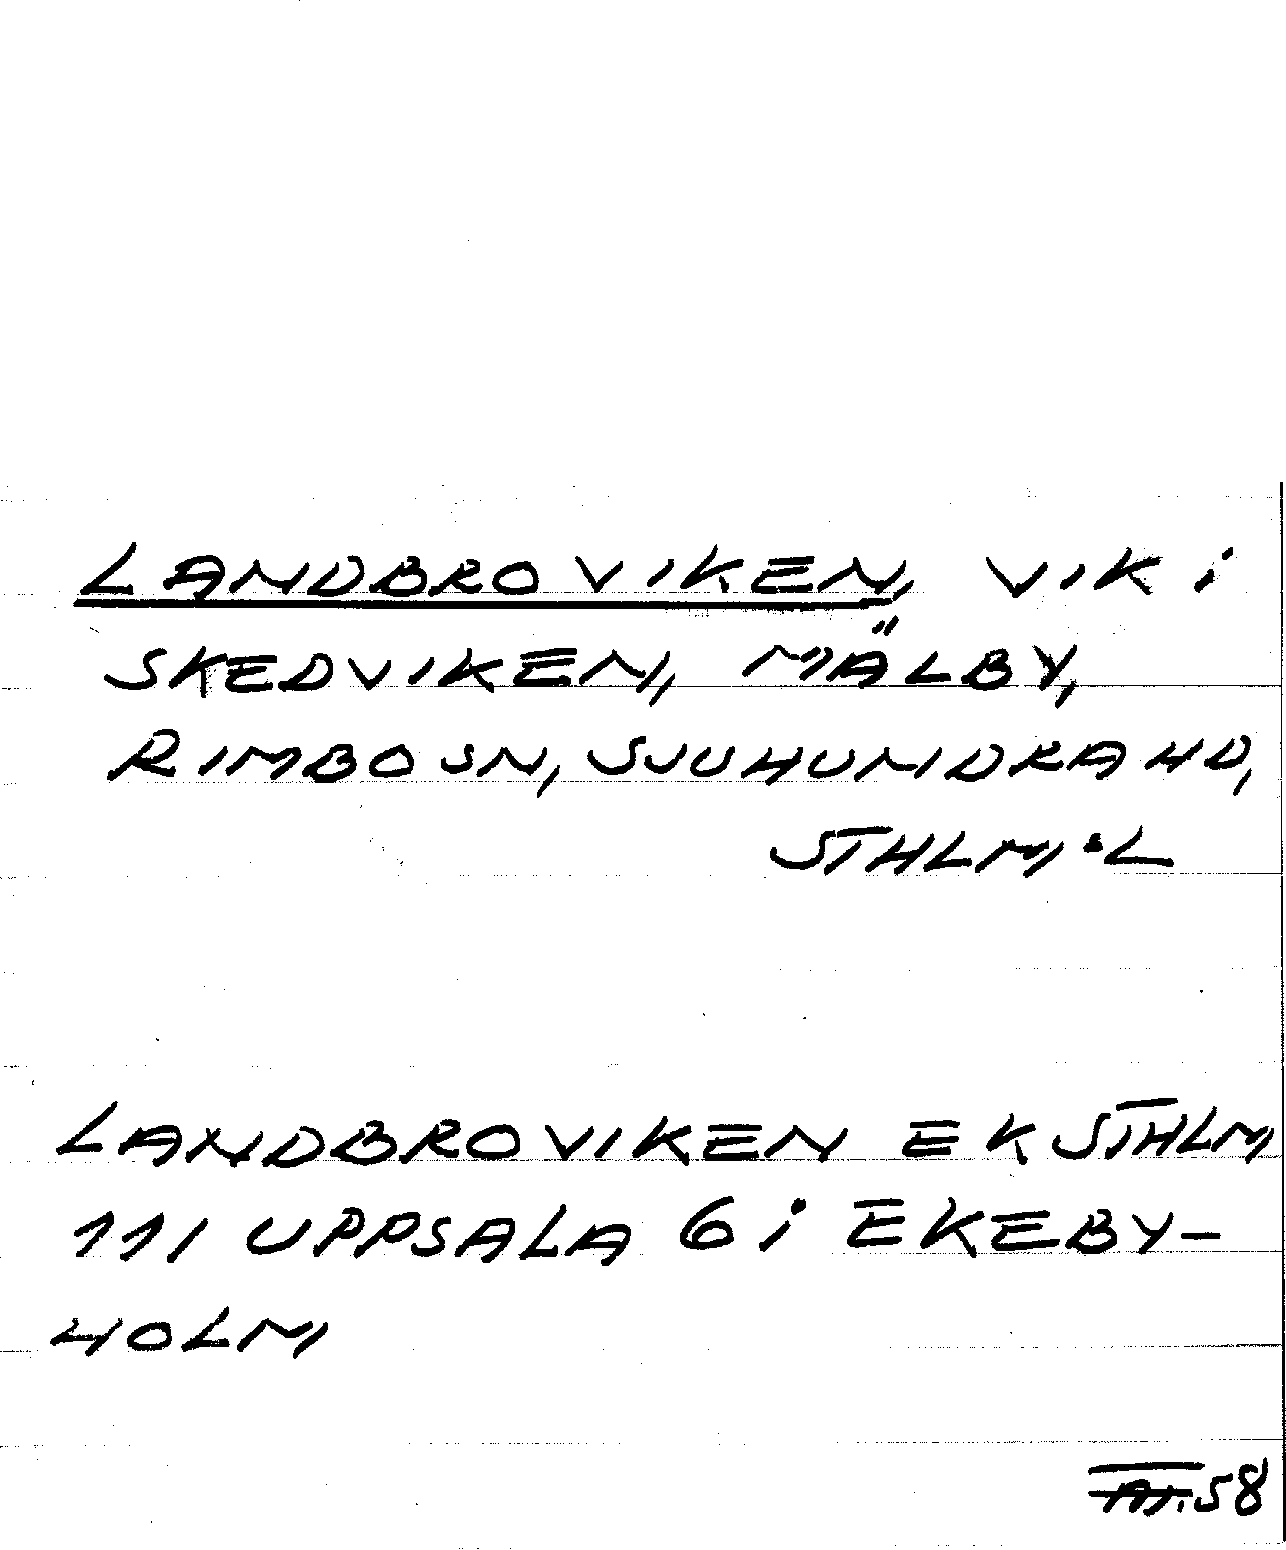 LANDBROVIKEN, VIK i
SKEDVIKEN, MÄLBY,
RIMBO SN, SJUHUNDRA HD,
STHLM.L
LANDBROVIKEN EK STHLM
111 UPPSALA 6 i EKEBY-
HOLM
58